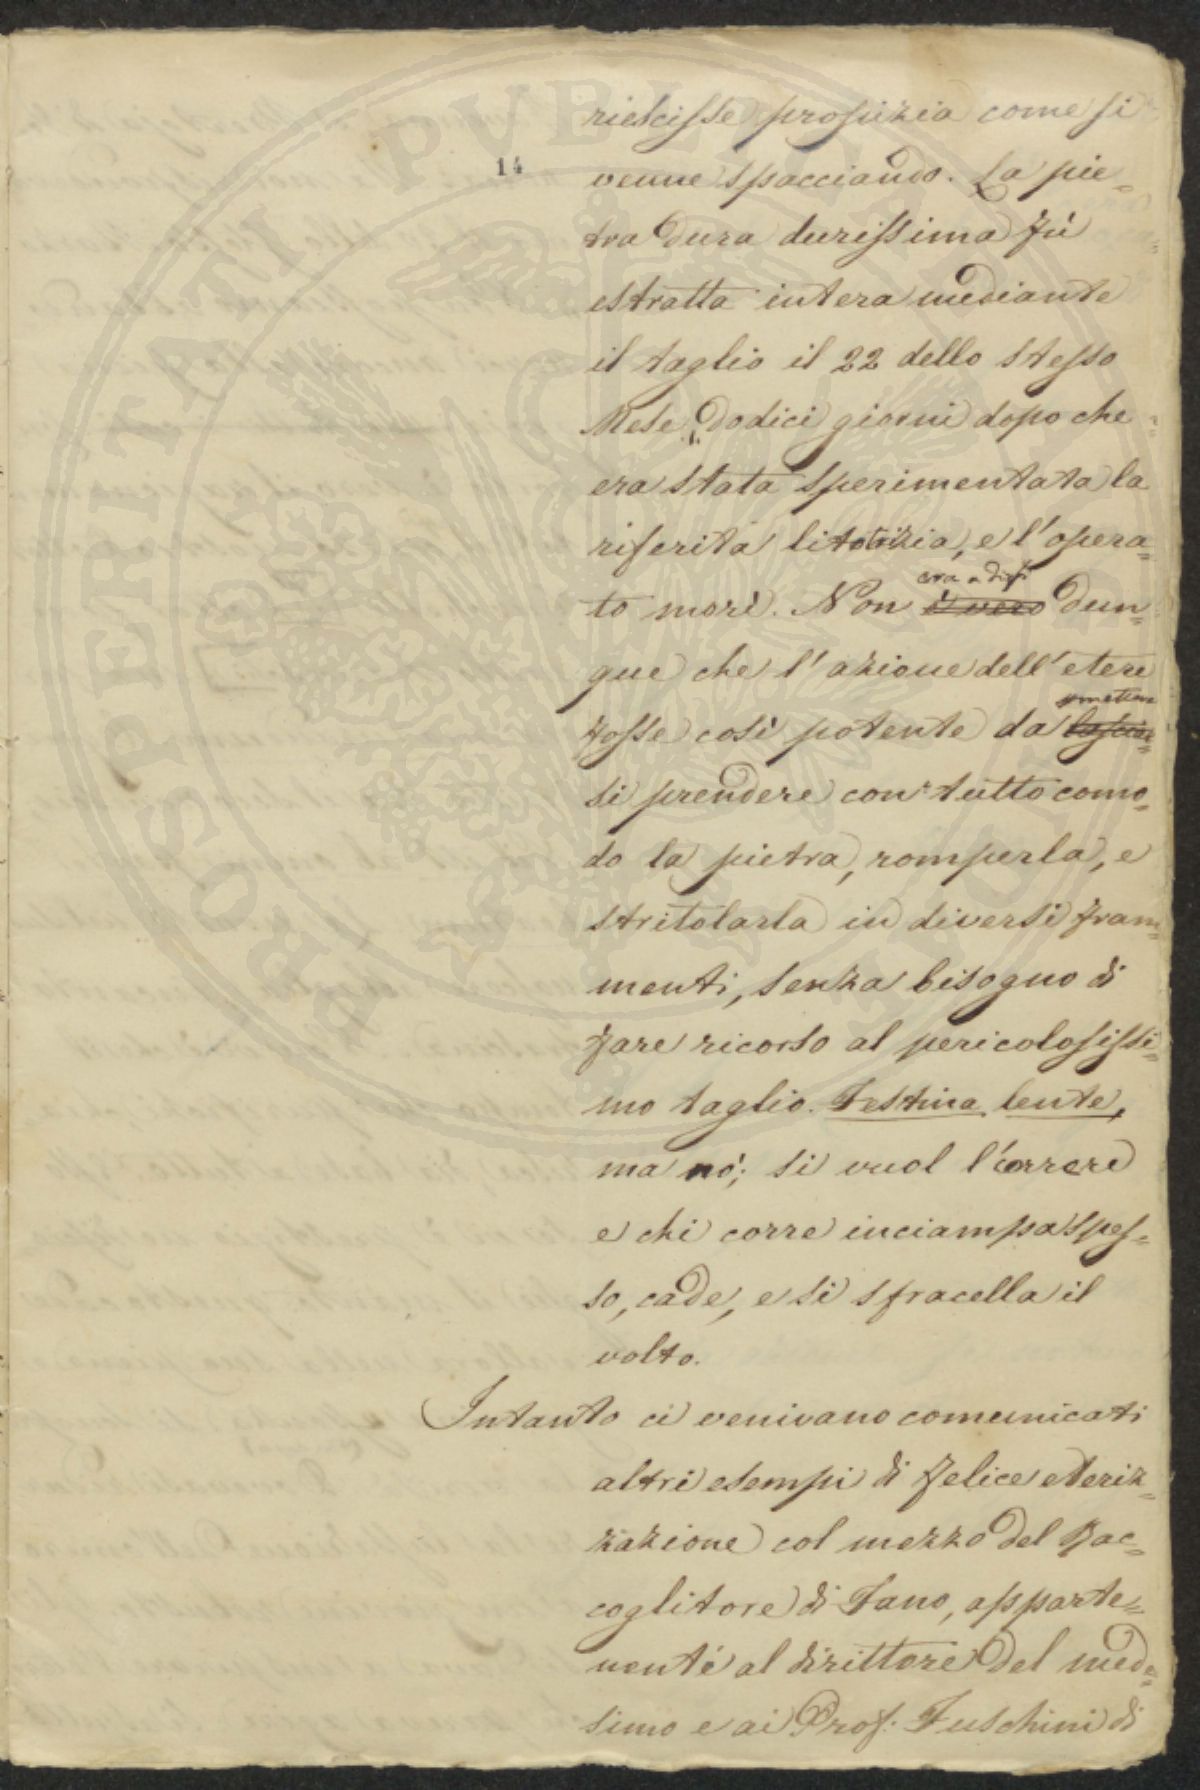 PROSPERITATI PVBLICAE
14
riescisse propizia come si
venne spacciando. La pie=
tra dura durissima fù
estratta intera mediante
il taglio il 22 dello stesso
Mese, dodici giorni dopo che
era stata sperimentata la
riferita litotrizia, e l'opera=
to morì. Non è vero dun=
era a dirsi
que che l'azione dell'etere
fosse così potente da lasciar=
si prendere con tutto como=
do la pietra, romperla, e
stritolarla in diversi fram=
menti, senza bisogno di
fare ricorso al pericolosissi=
mo taglio. Festina lente,
ma nò; si vuol l'correre
e chi corre inciampa spes=
so, cade, e si sfracella il
volto.
Intanto ci venivano comunicati
altri esempi di felice eteriz=
zazione col mezzo del Rac=
coglitore di Fano, apparte=
nenti al direttore del mede=
simo e ai Prof: Fuschini di